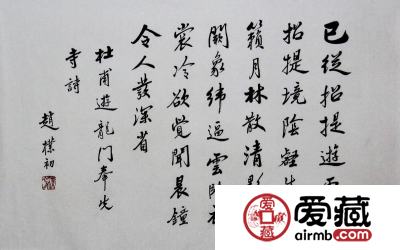 已從招提遊
招提境陰壑生
籟月林散清影
闕象緯逼雲臥衣
裳冷欲覺聞晨鐘
令人發深省
杜甫遊龍門奉先
寺詩
趙樸初
爱藏
airmb.com